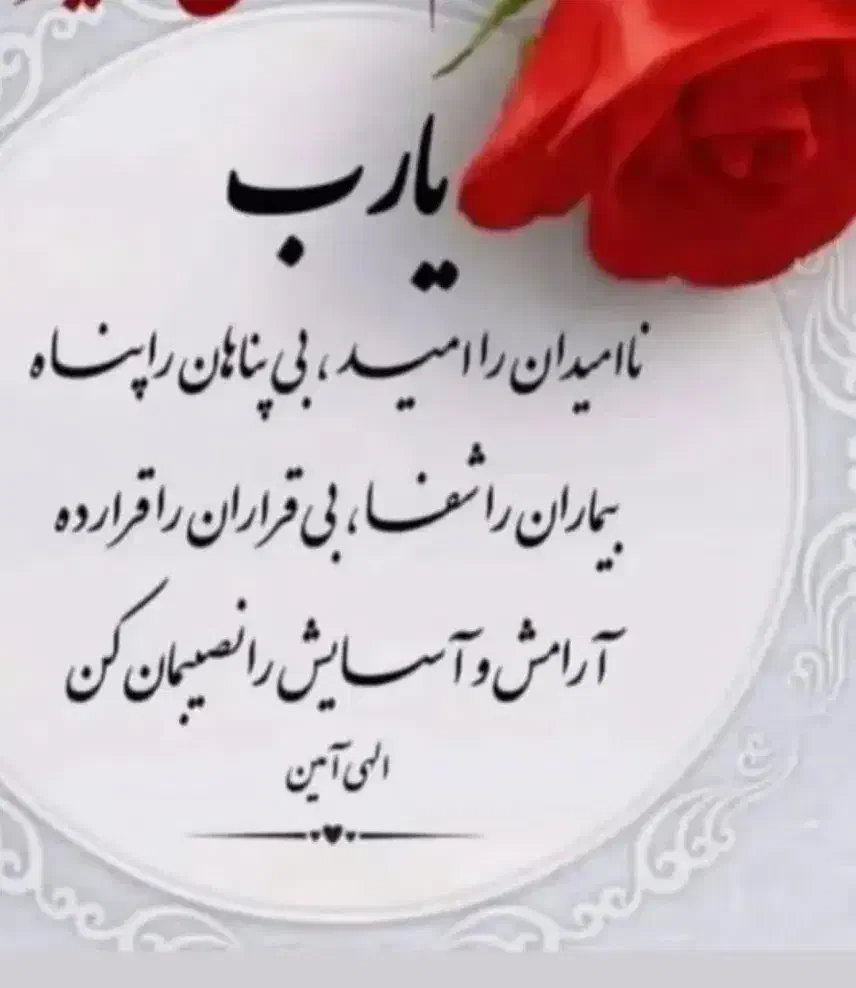 یارب
ناامیدان را امید، بی پناهان را پناه
بیماران را شفا، بی قراران را قرار ده
آرامش و آسایش را نصیبمان کن
الهی آمین